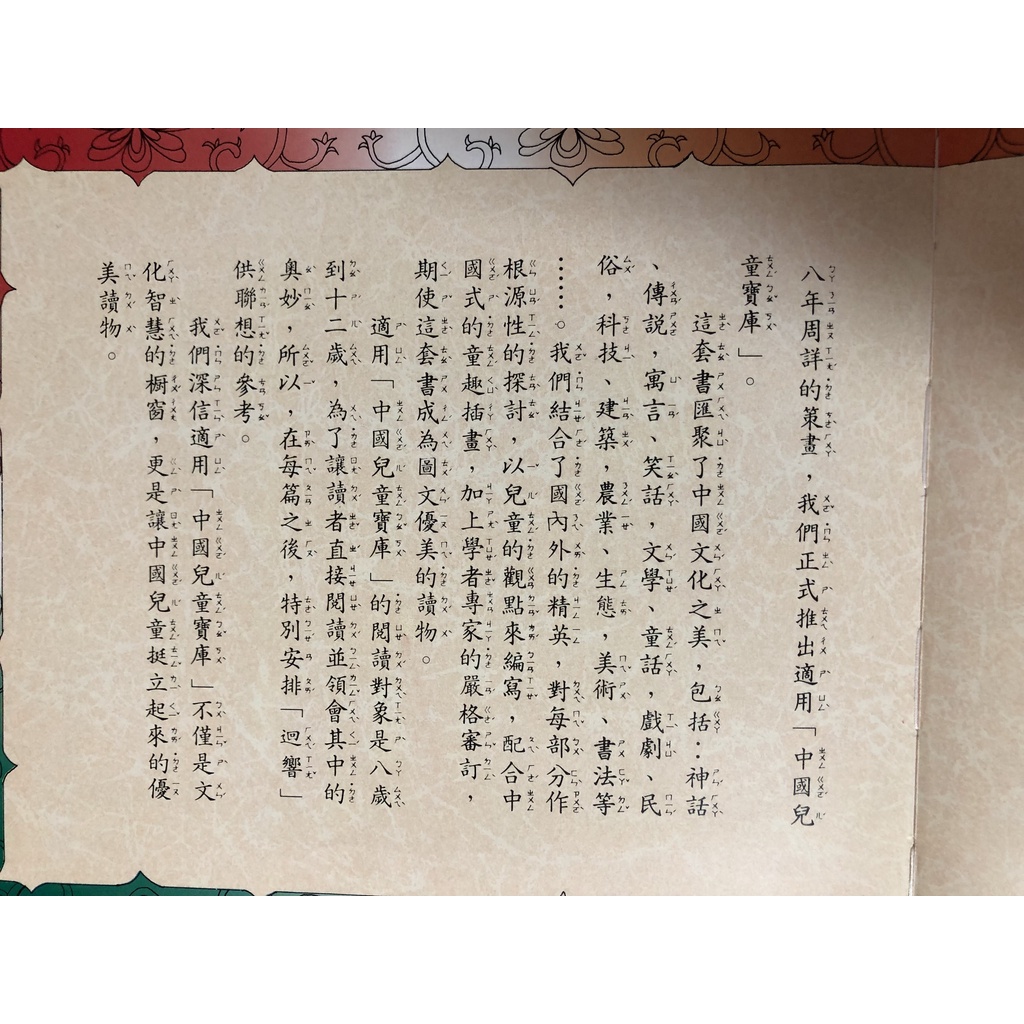 八年周詳的策畫，我們正式推出適用「中國兒
童寶庫」。
這套書匯聚了中國文化之美，包括：神話
、傳說，寓言、笑話，文學、童話，戲劇、民
俗，科技、建築，農業、生態，美術、書法等
……。我們結合了國內外的精英，對每部分作
根源性的探討，以兒童的觀點來編寫，配合中
國式的童趣插畫，加上學者專家的嚴格審訂，
期使這套書成為圖文優美的讀物。
適用「中國兒童寶庫」的閱讀對象是八歲
到十二歲，為了讓讀者直接閱讀並領會其中的
奧妙，所以，在每篇之後，特別安排「迴響」
供聯想的參考。
我們深信適用「中國兒童寶庫」不僅是文
化智慧的櫥窗，更是讓中國兒童挺立起來的優
美讀物。